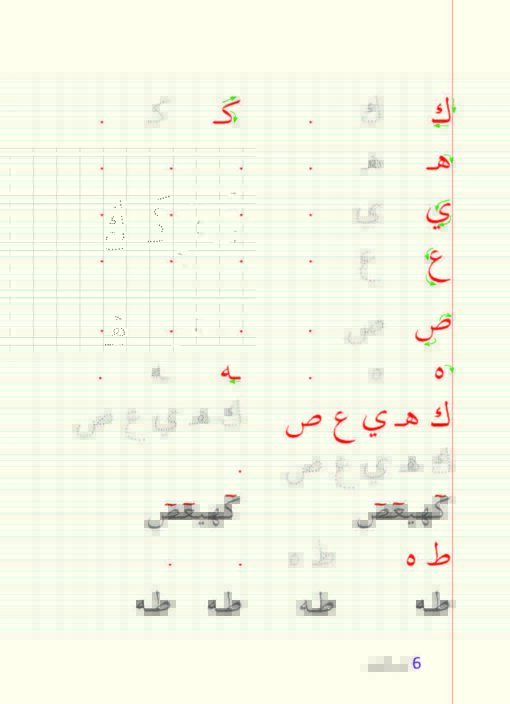 ك ك كـ كـ
هـ هـ
ي ي
ع ع
ص ص
ه ه ـه ـه
ك هـ ي ع ص ك هـ ي ع ص
ك هـ ي ع ص
كهيعص كهيعص
ط ه ط ه
طه طه طه طه
6